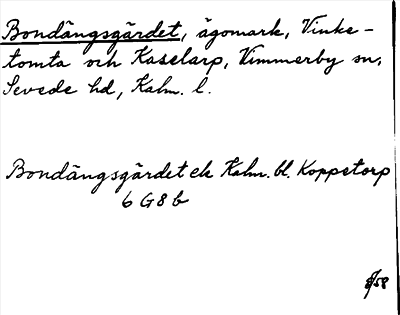 Bondängsgärdet, ägomark, Vinke-
tomta och Kaselarp, Vimmerby sn,
Sevede hd, Kalm. l.
Bondängsgärdet ek Kalm. bl. Koppetorp
6 G 8 b